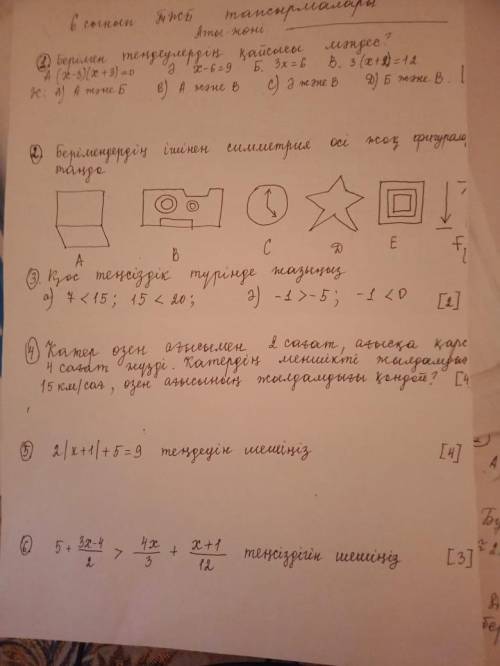 6 сынып ТЖБ тапсырмалары
Аты-жөні
1. Берілген теңдеулердің қайсысы мәндес?
А (x-3)(x+3)=0 Ә x-6=9 Б. 3x=6 В. 3(x+2)=12 [
Ж: А) А және Б В) А және В С) Ә және В Д) Б және В.
2. Берілгендердің ішінен симметрия осі жоқ фигурала
таңда
А В С Д Е F
3. Қос теңсіздік түрінде жазыңыз
а) 7 < 15; 15 < 20; ә) -1 > -5; -1 < 0 [2]
4. Катер өзен ағысымен 2 сағат, ағысқа қарс
4 сағат жүзді. Катердің меншікті жылдамдығ
15 км/сағ, өзен ағысының жылдамдығы қандай? [4
5. 2|x+1|+5=9 теңдеуін шешіңіз [4]
6. 5 + (3x-4)/2 > 4x/3 + (x+1)/12 теңсіздігін шешіңіз [3]